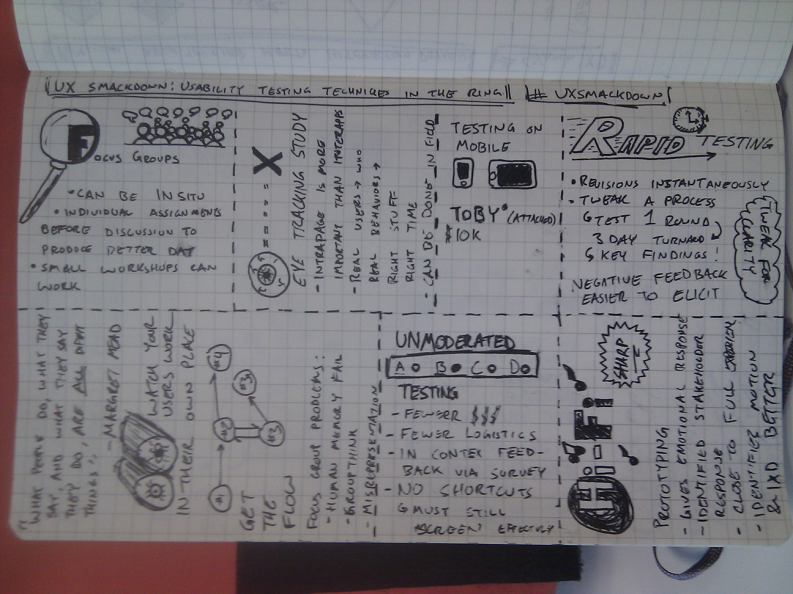 UX SMACKDOWN: USABILITY TESTING TECHNIQUES IN THE RING!
# UXSMACKDOWN!
FOCUS GROUPS
• CAN BE IN SITU
• INDIVIDUAL ASSIGNMENTS
BEFORE DISCUSSION TO
PRODUCE BETTER DAT
• SMALL WORKSHOPS CAN
WORK
X
EYE TRACKING STUDY
- INTRAPAGE IS MORE
IMPORTANT THAN
- REAL USERS → WHO
REAL BEHAVIORS →
RIGHT STUFF
RIGHT TIME
- CAN BE DONE IN FIELD
TESTING ON
MOBILE
TOBY (ATTACHED)
10K
RAPID TESTING
• REVISIONS INSTANTANEOUSLY
• TWEAK A PROCESS
& TEST 1 ROUND
3 DAY TURNARD
5 KEY FINDINGS!
NEGATIVE FEEDBACK
EASIER TO ELICIT
TWEAK FOR
CLARITY
"WHAT PEOPLE DO, WHAT THEY
SAY, AND WHAT THEY SAY
THEY DO, ARE ALL DIFFT
THINGS"
- MARGRET MEAD
WATCH YOUR
USERS WORK
IN THEIR OWN PLACE
#1
#2
#3
#3
#4
GET
THE
FLOW
FOCUS GROUP PROBLEMS:
- HUMAN MEMORY FAIL
- GROUPTHINK
- MISREPRESENTATION
UNMODERATED
A B C D
TESTING
- FEWER $$$
- FEWER LOGISTICS
- IN CONTEX FEED-
BACK VIA SURVEY
- NO SHORTCUTS
& MUST STILL
SCREEN EFFECTIVELY
HI-FI
SHARP
PROTOTYPING
- GIVES EMOTIONAL RESPONSE
- IDENTIFIED STAKEHOLDER
RESPONSE
- CLOSE TO FULL
- IDENTIFIES MOTION
& IXD BETTER